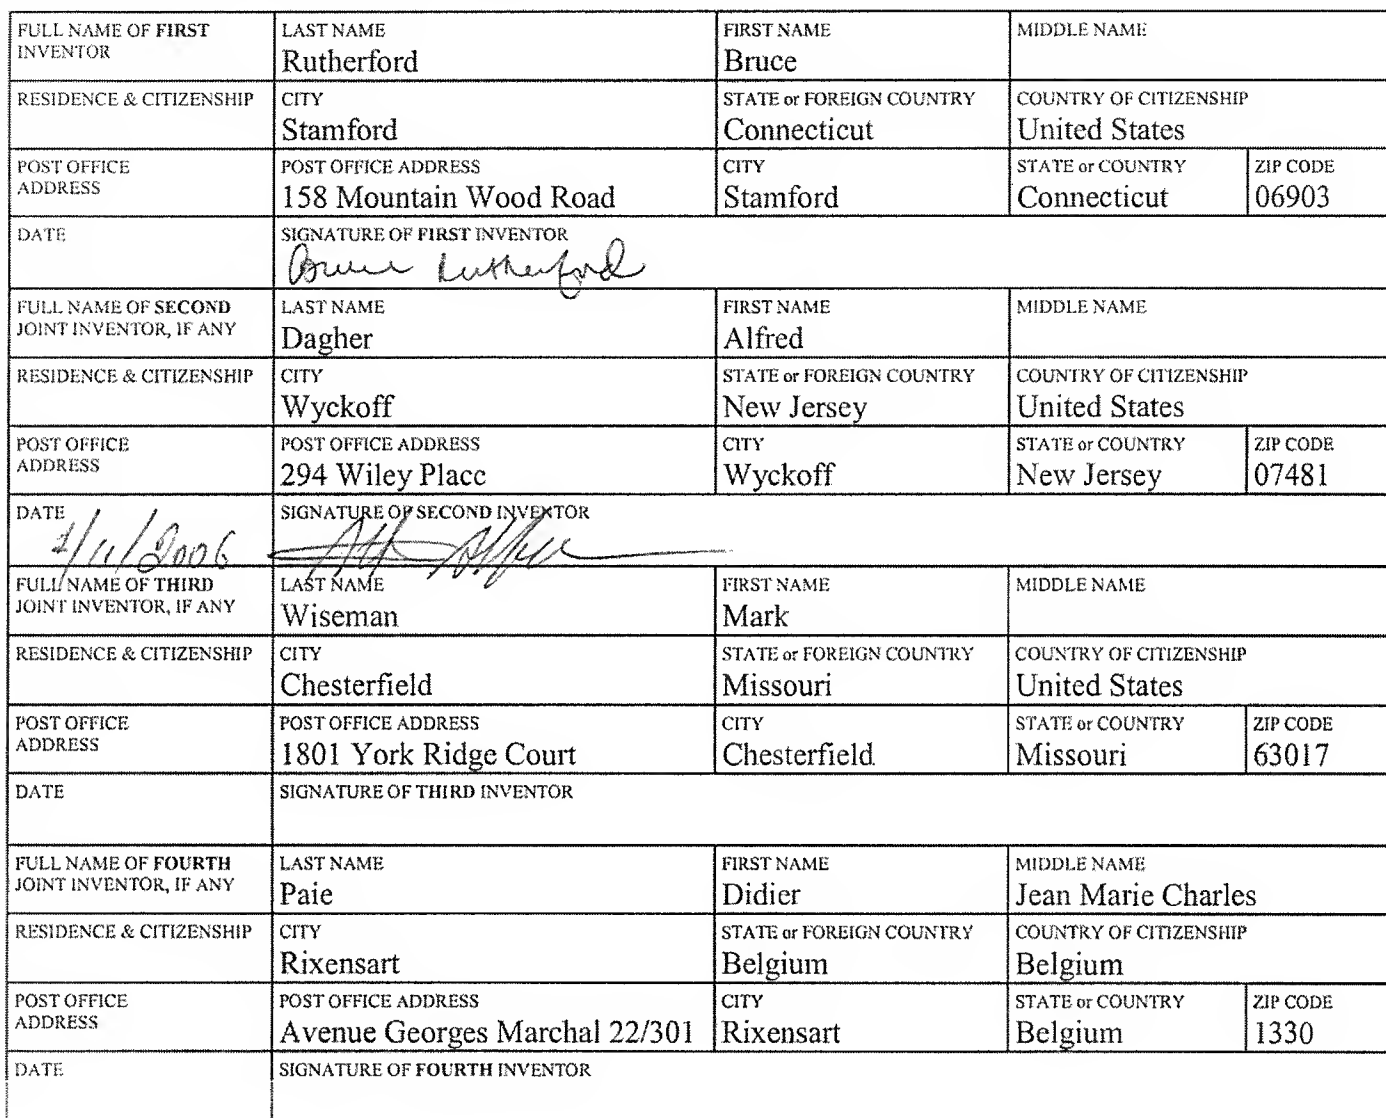 FULL NAME OF FIRST INVENTOR
LAST NAME
Rutherford
FIRST NAME
Bruce
MIDDLE NAME
RESIDENCE & CITIZENSHIP
CITY
Stamford
STATE or FOREIGN COUNTRY
Connecticut
COUNTRY OF CITIZENSHIP
United States
POST OFFICE
ADDRESS
POST OFFICE ADDRESS
158 Mountain Wood Road
CITY
Stamford
STATE or COUNTRY
Connecticut
ZIP CODE
06903
DATE
SIGNATURE OF FIRST INVENTOR
Bruce Rutherford
FULL NAME OF SECOND
JOINT INVENTOR, IF ANY
LAST NAME
Dagher
FIRST NAME
Alfred
MIDDLE NAME
RESIDENCE & CITIZENSHIP
CITY
Wyckoff
STATE or FOREIGN COUNTRY
New Jersey
COUNTRY OF CITIZENSHIP
United States
POST OFFICE
ADDRESS
POST OFFICE ADDRESS
294 Wiley Place
CITY
Wyckoff
STATE or COUNTRY
New Jersey
ZIP CODE
07481
DATE
/11/2006
SIGNATURE OF SECOND INVENTOR
FULL NAME OF THIRD
JOINT INVENTOR, IF ANY
LAST NAME
Wiseman
FIRST NAME
Mark
MIDDLE NAME
RESIDENCE & CITIZENSHIP
CITY
Chesterfield
STATE or FOREIGN COUNTRY
Missouri
COUNTRY OF CITIZENSHIP
United States
POST OFFICE
ADDRESS
POST OFFICE ADDRESS
1801 York Ridge Court
CITY
Chesterfield
STATE or COUNTRY
Missouri
ZIP CODE
63017
DATE
SIGNATURE OF THIRD INVENTOR
FULL NAME OF FOURTH
JOINT INVENTOR, IF ANY
LAST NAME
Paie
FIRST NAME
Didier
MIDDLE NAME
Jean Marie Charles
RESIDENCE & CITIZENSHIP
CITY
Rixensart
STATE or FOREIGN COUNTRY
Belgium
COUNTRY OF CITIZENSHIP
Belgium
POST OFFICE
ADDRESS
POST OFFICE ADDRESS
Avenue Georges Marchal 22/301
CITY
Rixensart
STATE or COUNTRY
Belgium
ZIP CODE
1330
DATE
SIGNATURE OF FOURTH INVENTOR